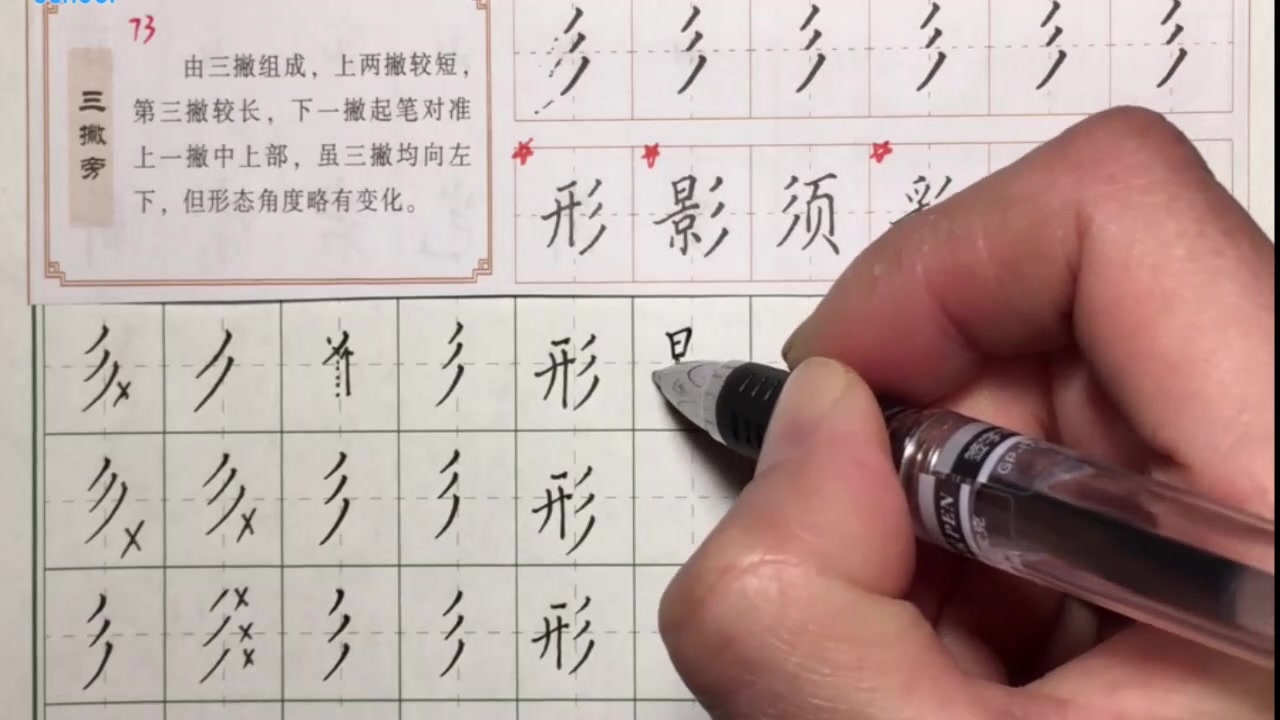 73
三撇旁
由三撇组成，上两撇较短，
第三撇较长，下一撇起笔对准
上一撇中上部，虽三撇均向左
下，但形态角度略有变化。
彡 彡 彡 彡 彡 彡
形 影 须 彩
彡 彡 形 日
彡 彡 彡 彡 形
彡 彡 彡 彡 形
GP-
PEN